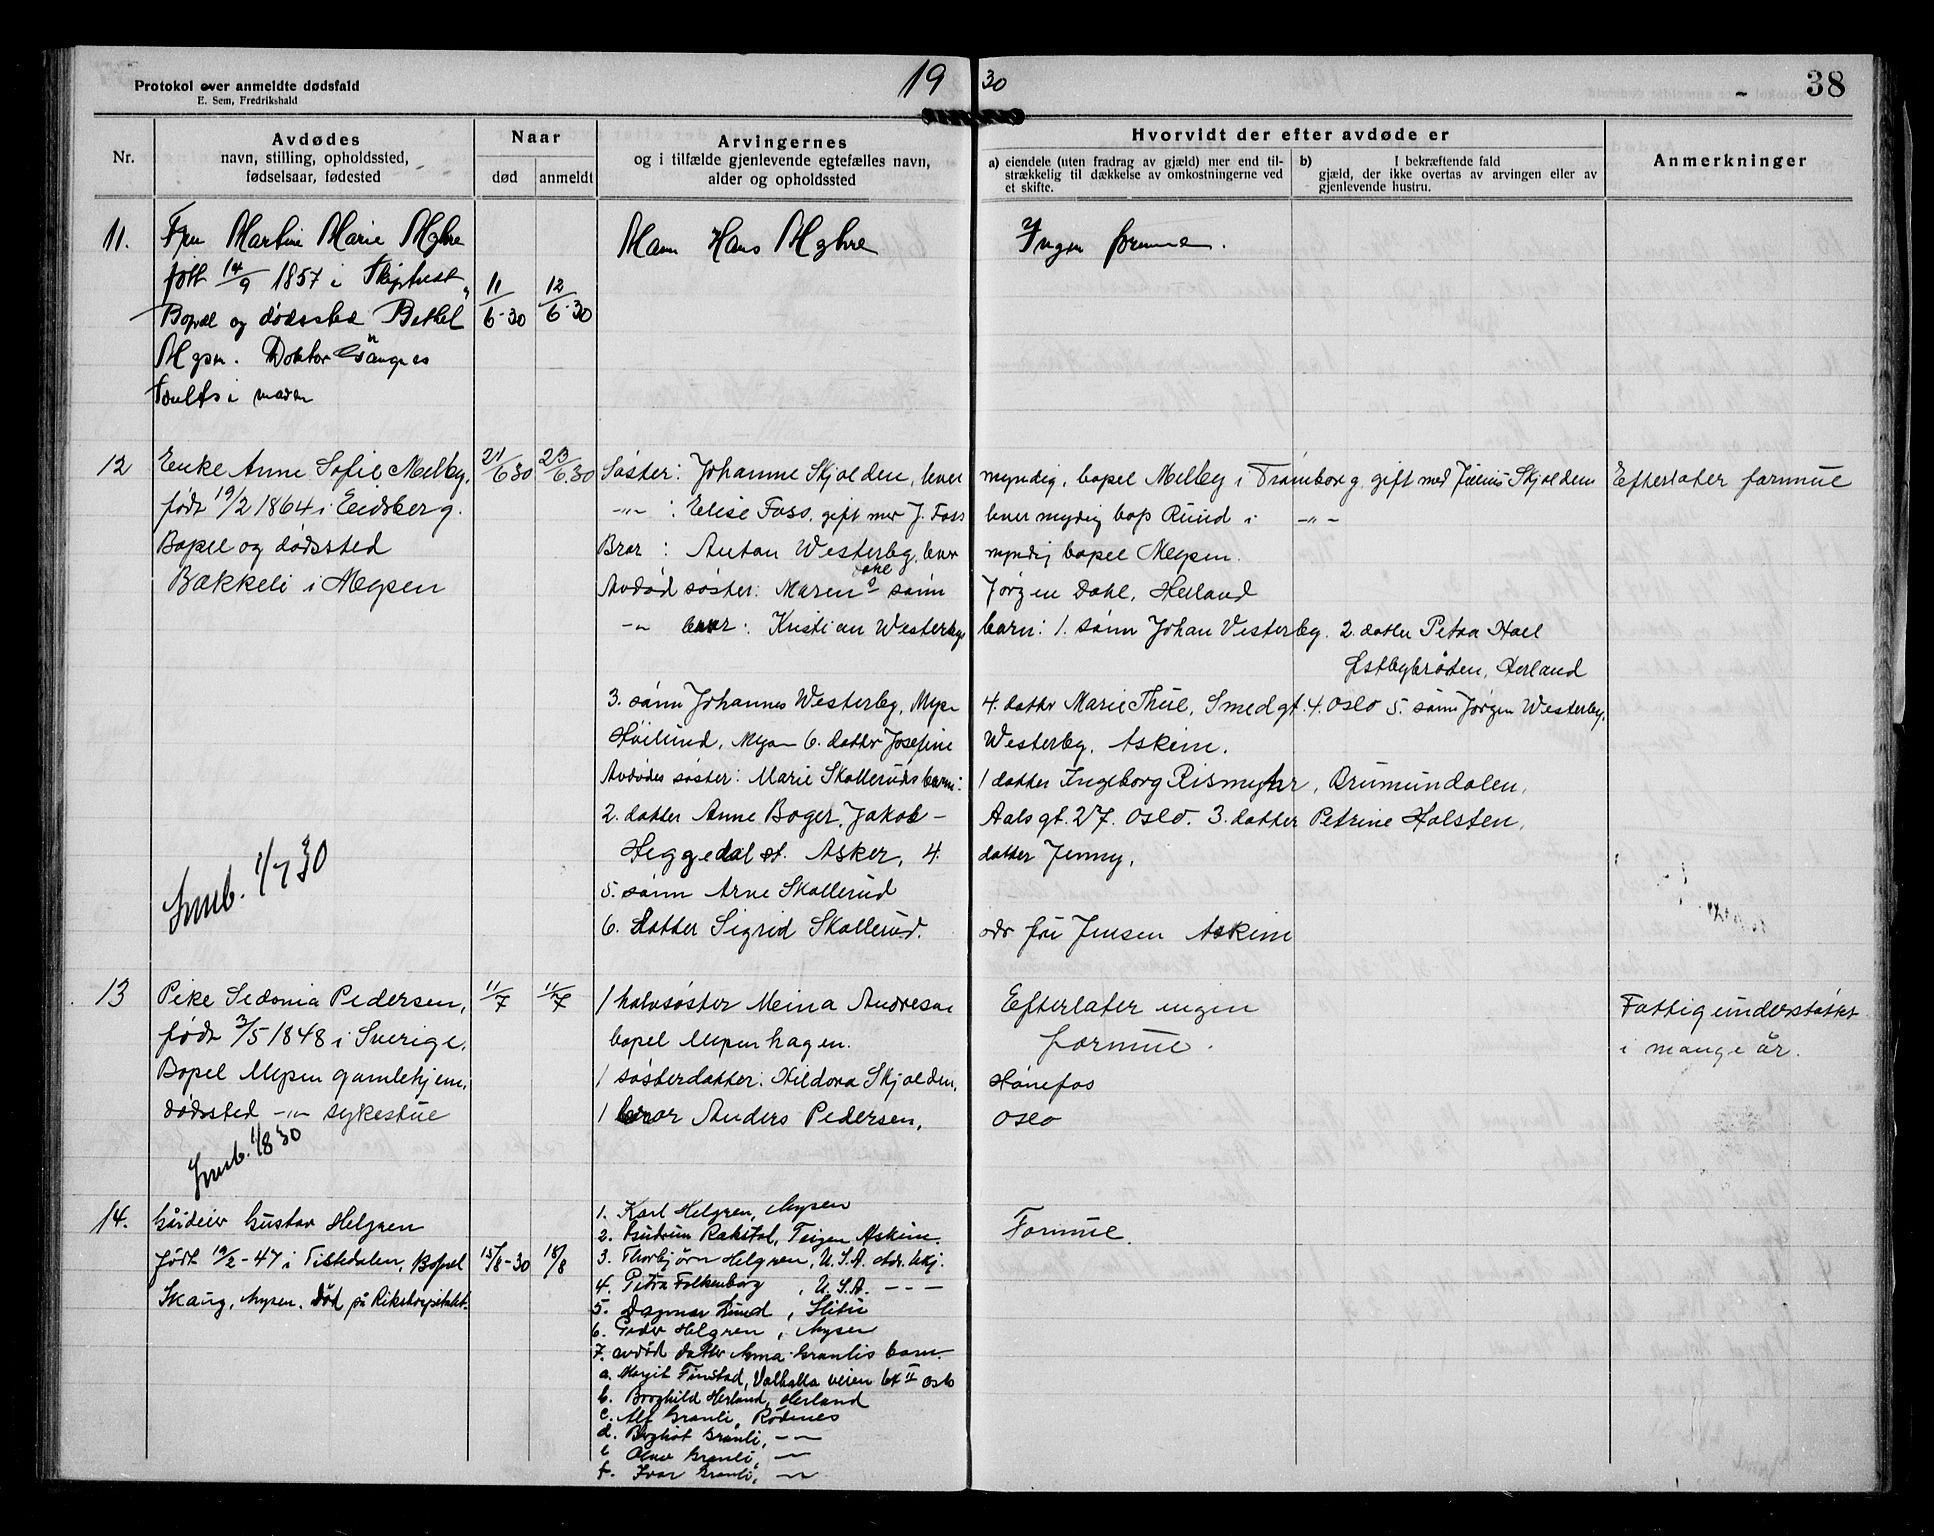 Protokol over anmeldte dødsfald
E. Sem, Fredrikshald
19 30
38
Nr.
Avdødes
navn, stilling, opholdssted,
fødselsaar, fødested
Naar
død
anmeldt
Arvingernes
og i tilfælde gjenlevende egtefælles navn,
alder og opholdssted
Hvorvidt der efter avdøde er
a) eiendele (uten fradrag av gjæld) mer end til-
strækkelig til dækkelse av omkostningerne ved
et skifte.
b) I bekræftende fald
gjæld, der ikke overtas av arvingen eller av
gjenlevende hustru.
Anmerkninger
11.
Fru Martine Marie Myhre
født 14/9 1857 i
Bopæl og dødssted Bethel
Mysen. Doktor
i maven
11/6-30
12/6-30
Mann Hans Myhre
Ingen formue.
12
Enke Anne Sofie Melby,
født 19/2 1864 i Eidsberg.
Bopel og dødssted
Bakkeli i Mysen
21/6 30
23/6.30
Søster: Johanne Skjolden, lever myndig, bopel Melby i Trømborg, gift med Julius Skjolden
-"- : Elise Foss, gift mer J. Foss lever mydig bop Ruud i -"-
Bror : Anton Westerby, lever myndig bopel Mysen.
Avdød søster: Maren Dahl s sønn Jørgen Dahl, Herland
-"- bror: Kristian Westerbys barn: 1. sønn Johan Vesterby. 2. datter Petra Hoel
Østbybråten, Herland
3. sønn Johannes Westerby, Mysen 4. datter Marie Thue, Smedgt. 4. Oslo 5. sønn Jørgen Westerby,
Høilund, Mysen 6. datter Josefine Westerby, Askim.
Avdødes søster: Marie Skolleruds barn: 1 datter Ingeborg Rismyhr, Brumundalen,
2. datter Anne Boger, Jakob- Aalsgt. 27. Oslo. 3. datter Petrine Holsten,
Heggedal st. Asker, 4. datter Jenny,
5. sønn Arne Skollerud
6. datter Sigrid Skollerud. adr fru Jensen Askim
Efterlater formue
Innb. 1/7 30
13
Pike Sedonia Pedersen,
født 3/5 1848 i Sverige.
Bopel Mysen gamlehjem,
dødssted -"- sykestue
11/7
11/7
1 halvsøster Meina Andresen
bopel Mysenhagen.
1 søsterdatter: Hildora Skjolden, Hønefos
1 bror Anders Pedersen, Oslo
Efterlater ingen
formue.
Fattigunderstøttet
i mange år.
Innb. 1/8 30
14.
Gårdeier Gustav Helgren
født 19/2-47 i Tistedalen, Bopel
Skaug, Mysen. Død på Rikshospitalet.
15/8-30
18/8
1. Karl Helgren, Mysen
2. Gudrun Rakstad, Teigen Askim.
3. Thorbjørn Helgren, U.S.A. Adr. ukj.
4. Petra Folkenborg , U.S.A. - - -
5. Dagmar Lund , Slitu
6. Peder Helgren , Mysen
7. avdød datter Anna Granlis barn.
a. Margit Finstad, Valhalla veien 64 II Oslo
b. Borghild Herland, Herland
c. Alf Granli, Rødenes
d. Bergliot Granli, -"-
e Olav Granli, -"-
f. Ivar Granli, -"-
Formue.